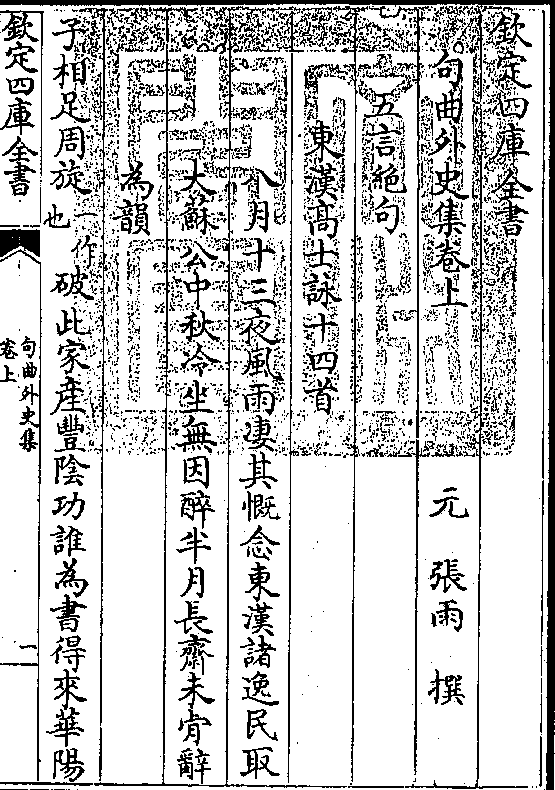 欽定四庫全書
句曲外史集卷上
元 張雨 撰
五言絶句
東漢髙士詠十四首
八月十三夜風雨凄其慨念東漢諸逸民取
大蘇公中秋冷坐無因醉半月長齋未肯辭
為韻
子相足周旋一作也破此家産豐陰功誰為書得來華陽
欽定四庫全書
句曲外史集
卷上
一